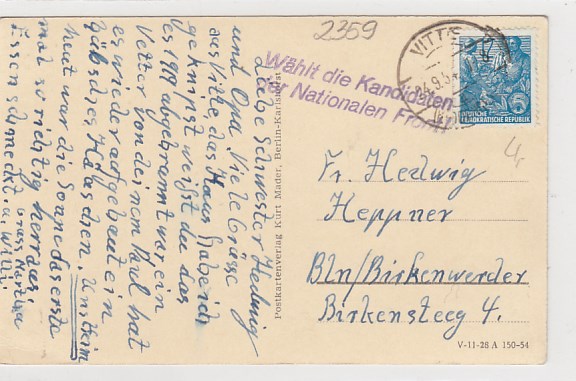 2359
Wählt die Kandidaten
der Nationalen Front!
VITTE
DEUTSCHE
DEMOKRATISCHE REPUBLIK
Liebe Schwester Hedwig
und Opa. Viele Grüsse
aus Vitte, das Haus
weißt du das
es 1919 abgebrannt war ein
Vetter von deinem Paul hat
es wieder aufgebaut ein
hübsches Häuschen.
heut war die Sonne das erste
mal so richtig herraus.
Essen schmeckt.
Gruss Martha
u. Willi
Postkartenverlag Kurt Mader, Berlin-Karlshorst
Fr. Hedwig
Heppner
Bln/Birkenwerder
Birkensteeg 4.
V-11-28 A 150-54